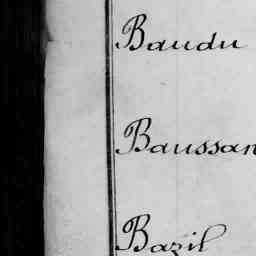 Baudu
Baussan
Bazil